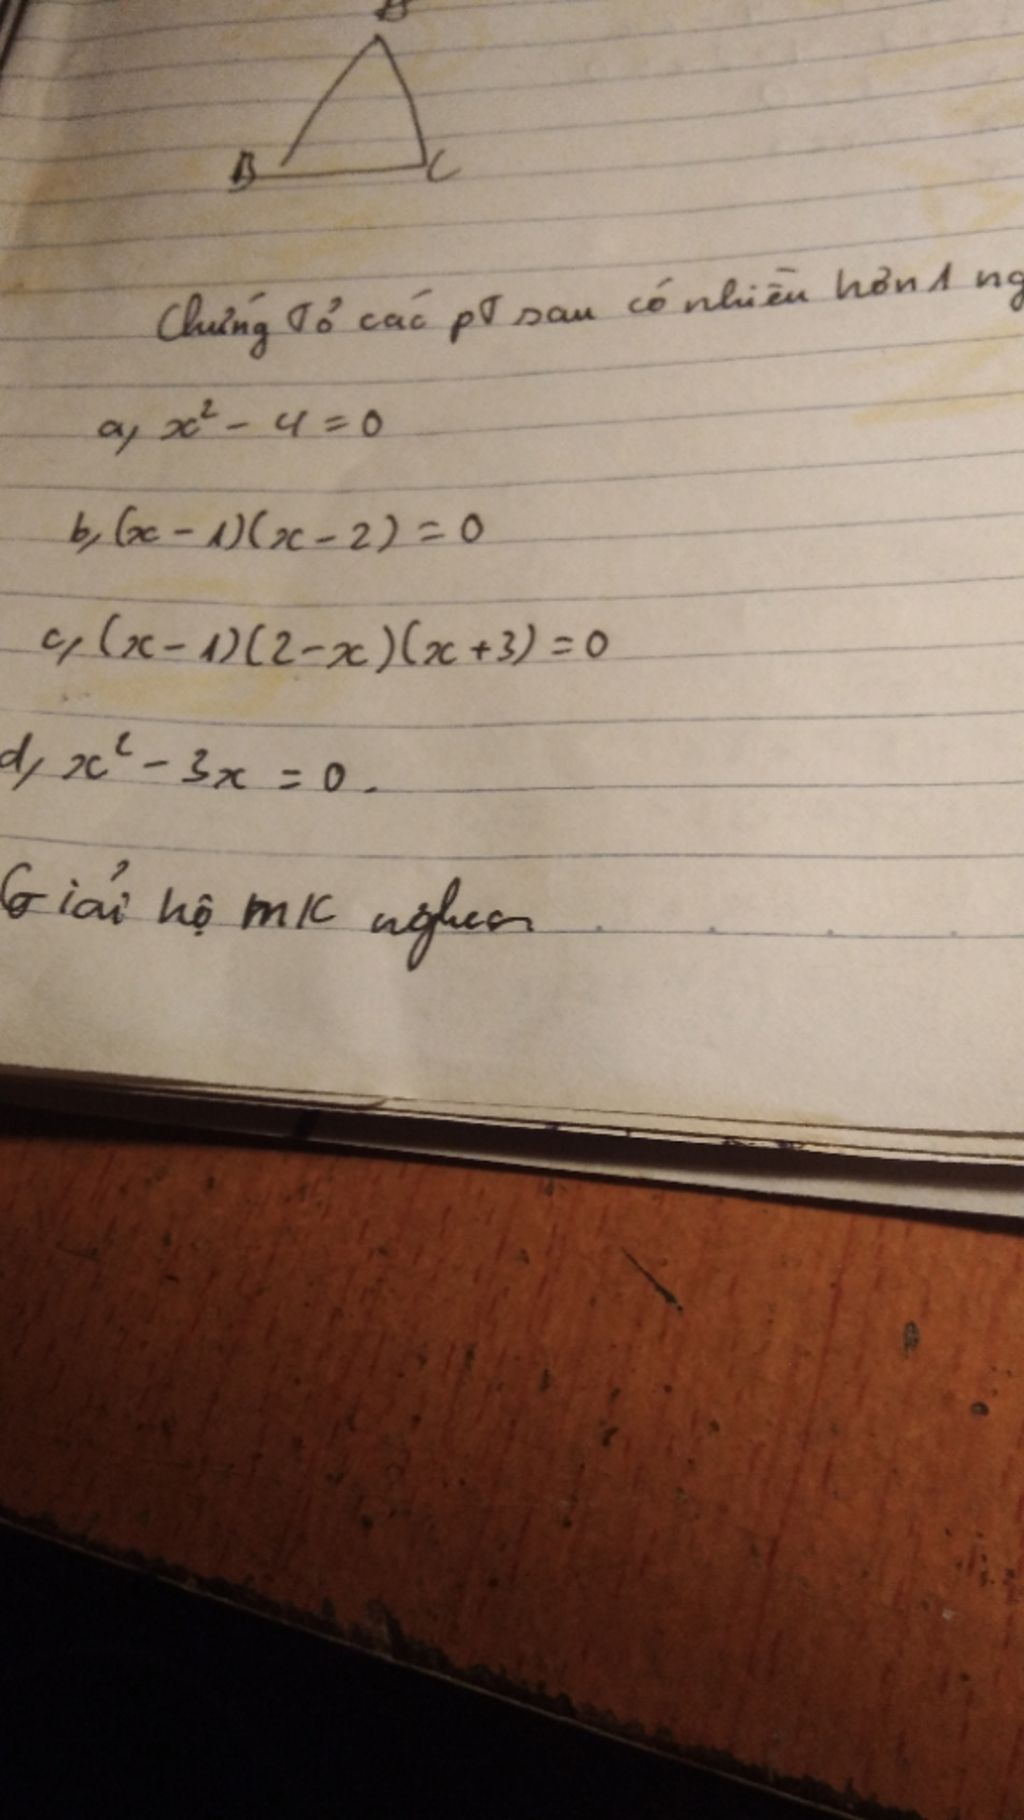 B C
Chứng tỏ các pT sau có nhiều hơn 1 ng
a, x² - 4 = 0
b, (x - 1)(x - 2) = 0
c, (x - 1)(2 - x)(x + 3) = 0
d, x² - 3x = 0.
Giải hộ mk nghen